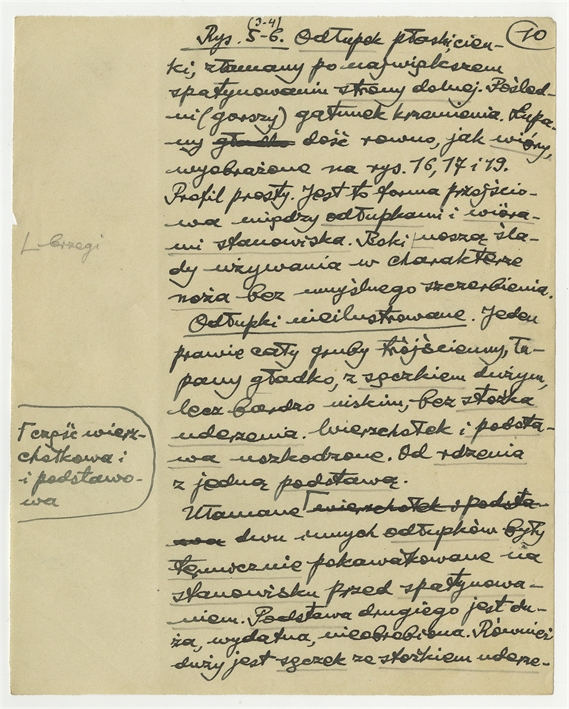 10
(3-4)
Rys. 5-6. Odłupek płaski, cien-
ki, złamany po największem
spatynowaniu strony dolnej. Pośled-
ni (gorszy) gatunek krzemienia. Łupa-
ny gładko dość równo, jak wióry,
wyobrażone na rys. 16, 17 i 19.
Profil prosty. Jest to forma przejścio-
wa między odłupkami i wióra-
mi stanowiska. Boki noszą śla-
L brzegi
dy używania w charakterze
noża bez umyślnego szczerbienia.
Odłupki nieilustrowane. Jeden
prawie cały gruby trójścienny, łu-
pany gładko, z sęczkiem dużym,
lecz bardzo niskim, bez stożka
uderzenia. Wierzchołek i podsta-
wa uszkodzone. Od rdzenia
z jedną podstawą.
Γ część wierz-
chołkowa i
i podstawo-
wa
Ułamane Γ wierzchołek i podsta-
wa dwu innych odłupków były
termicznie pokawałkowane na
stanowisku przed spatynowa-
niem. Podstawa drugiego jest du-
ża, wydatna, nieobrobiona. Również
duży jest sęczek ze stożkiem uderze-